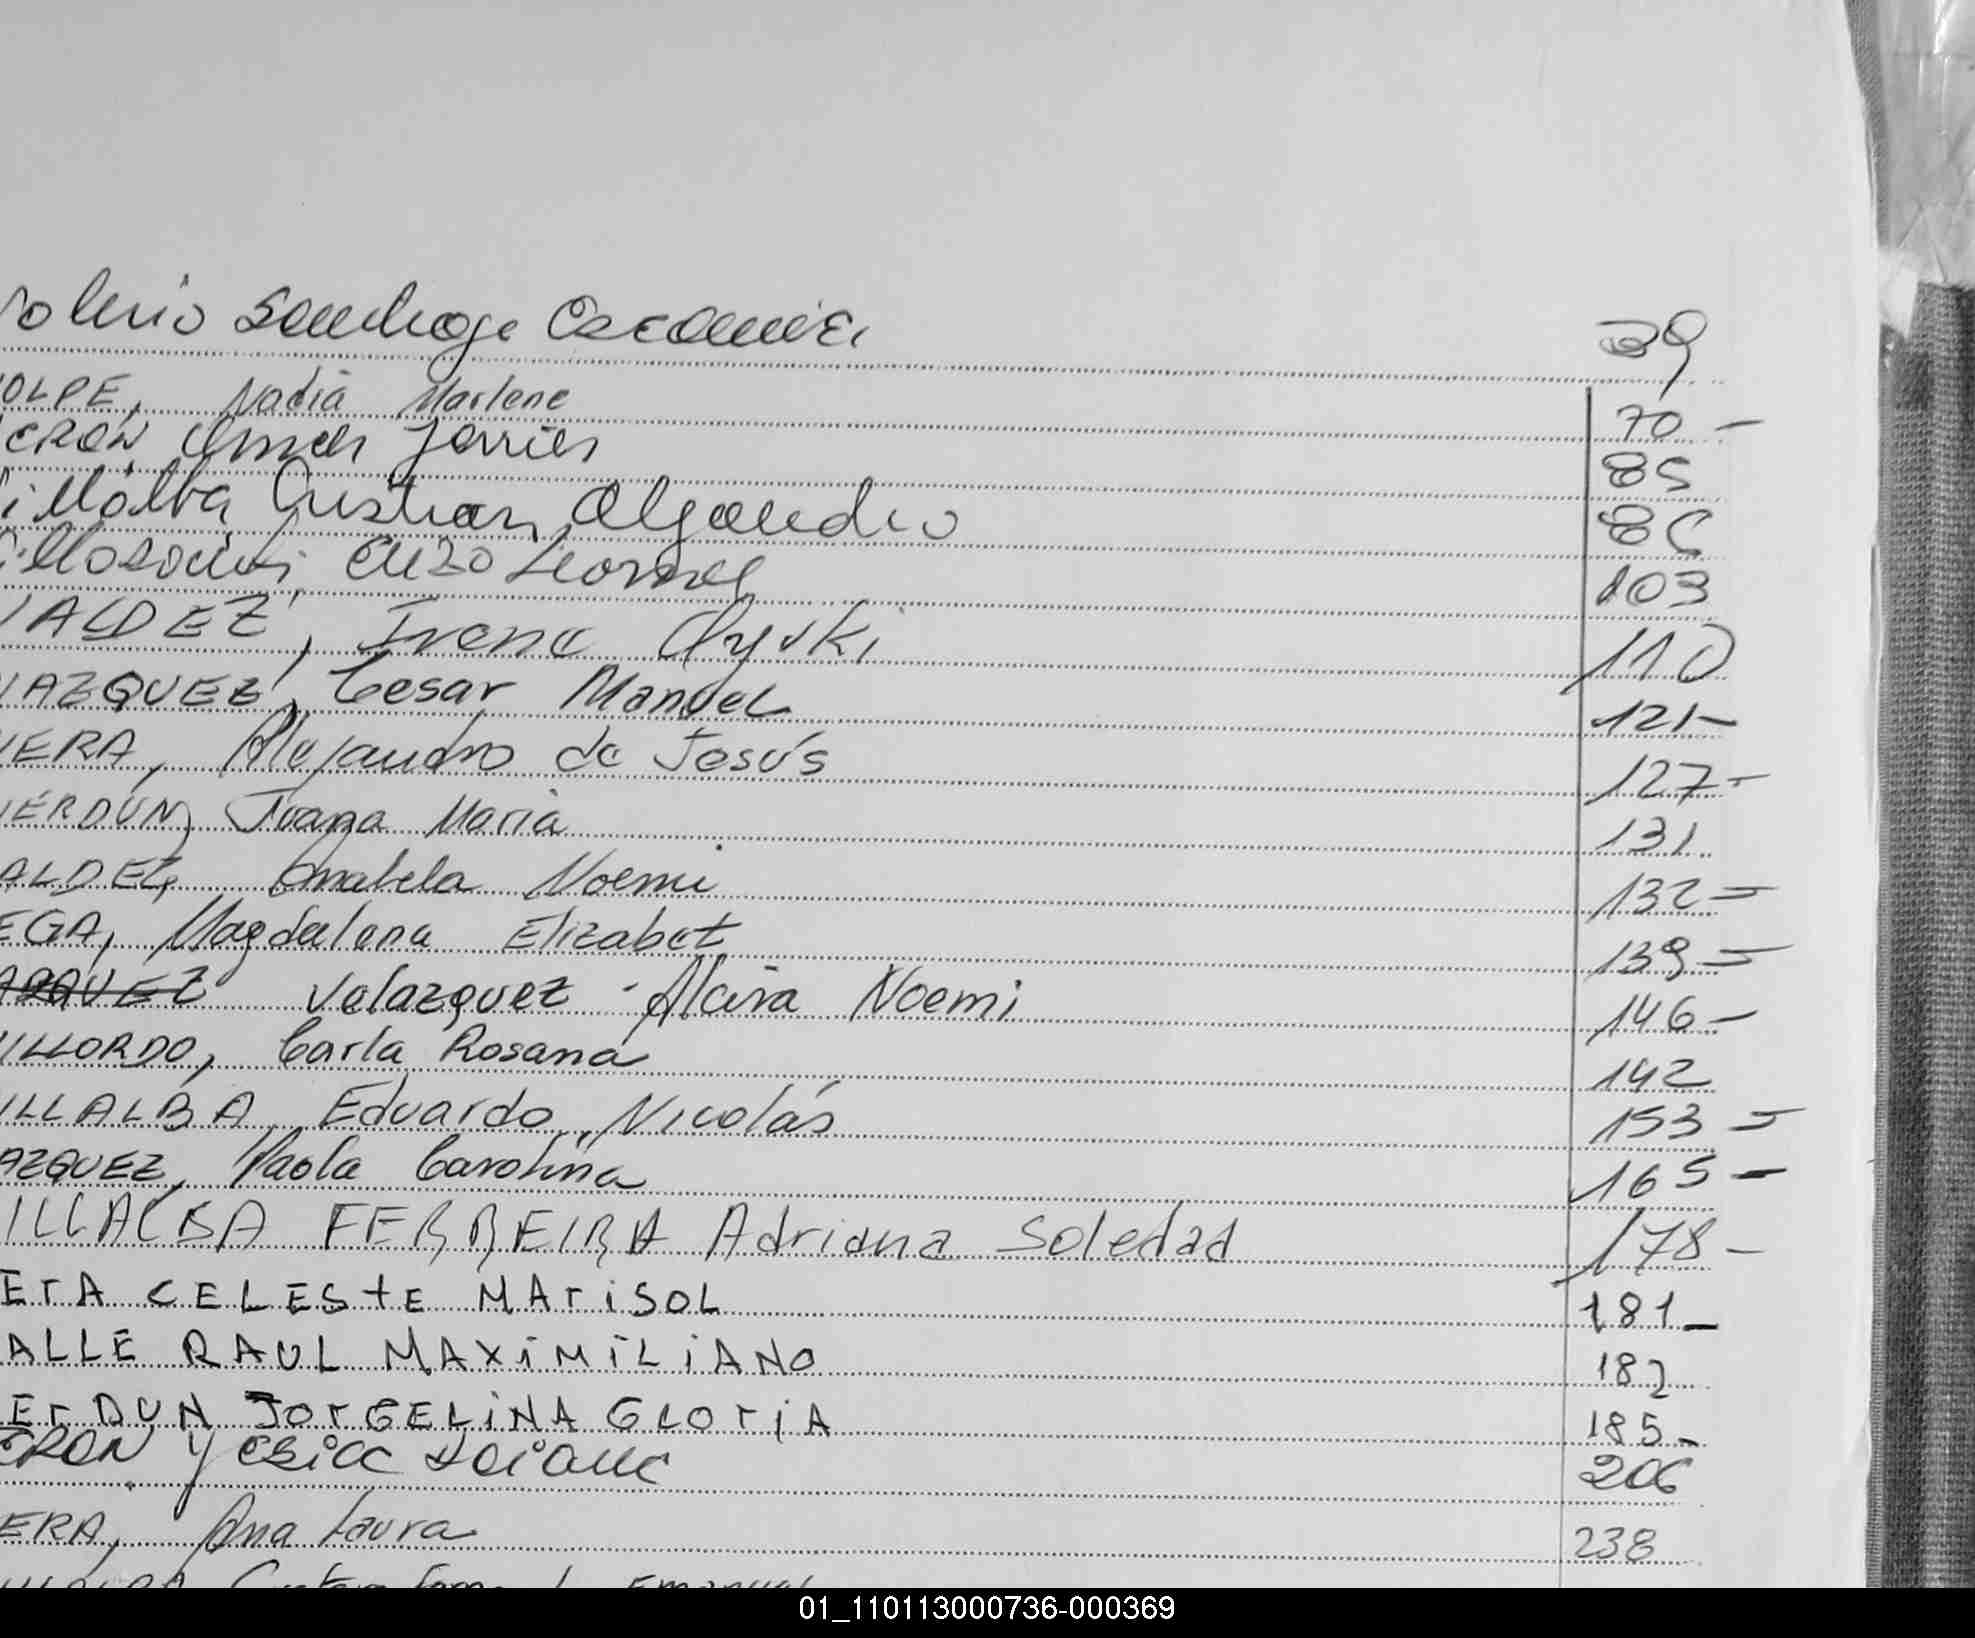 39
OLPE, Nadia Marlene 70 -
CRON Omar Javier 85
illalba Cristian Alejandro 86
Enzo Leonel 103
VALDEZ, Irene Ayski 110
VAZQUEZ, Cesar Manuel 121-
VERA, Alejandro de Jesús 127-
VERDUN, Juana Maria 131
ALDEZ, Anabela Noemi 132-
EGA, Magdalena Elizabet 139-
Velazquez - Alcira Noemi 146-
ILLORDO, Carla Rosana 142
ILLALBA, Eduardo Nicolás 153-
AZQUEZ, Paola Carolina 165-
ILLALBA FERREIRA Adriana Soledad 178-
ErA CELEStE MAriSOL 181-
ALLE RAUL MAXiMiLiANO 182
ErDUN JOrGELiNA GLOriA 185-
ERON Yesica Daiana 206
ERA, Ana Laura 238
01_110113000736-000369